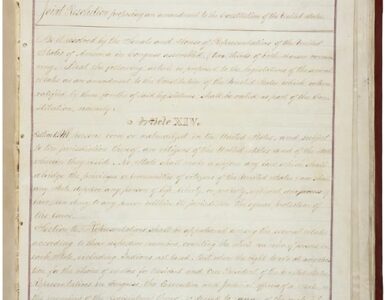 Joint Resolution proposing an amendment to the Constitution of the United States.
Be it resolved by the Senate and House of Representatives of the United
States of America in Congress assembled, (two thirds of both Houses concur-
ring,) That the following article be proposed to the legislatures of the several
States as an amendment to the Constitution of the United States which when
ratified by three fourths of said legislatures shall be valid as part of the Con-
stitution, namely:
Article XIV.
Section 1. All persons born or naturalized in the United States, and subject
to the jurisdiction thereof, are citizens of the United States and of the State
wherein they reside. No State shall make or enforce any law which shall
abridge the privileges or immunities of citizens of the United States; nor shall
any State deprive any person of life, liberty, or property, without due process of
law; nor deny to any person within its jurisdiction the equal protection of
the laws.
Section 2. Representatives shall be apportioned among the several States
according to their respective numbers, counting the whole number of persons in
each State, excluding Indians not taxed. But when the right to vote at any elec-
tion for the choice of electors for President and Vice President of the United States,
Representatives in Congress, the Executive and Judicial officers of a State, or
the members of the Legislature thereof, is denied to any of the